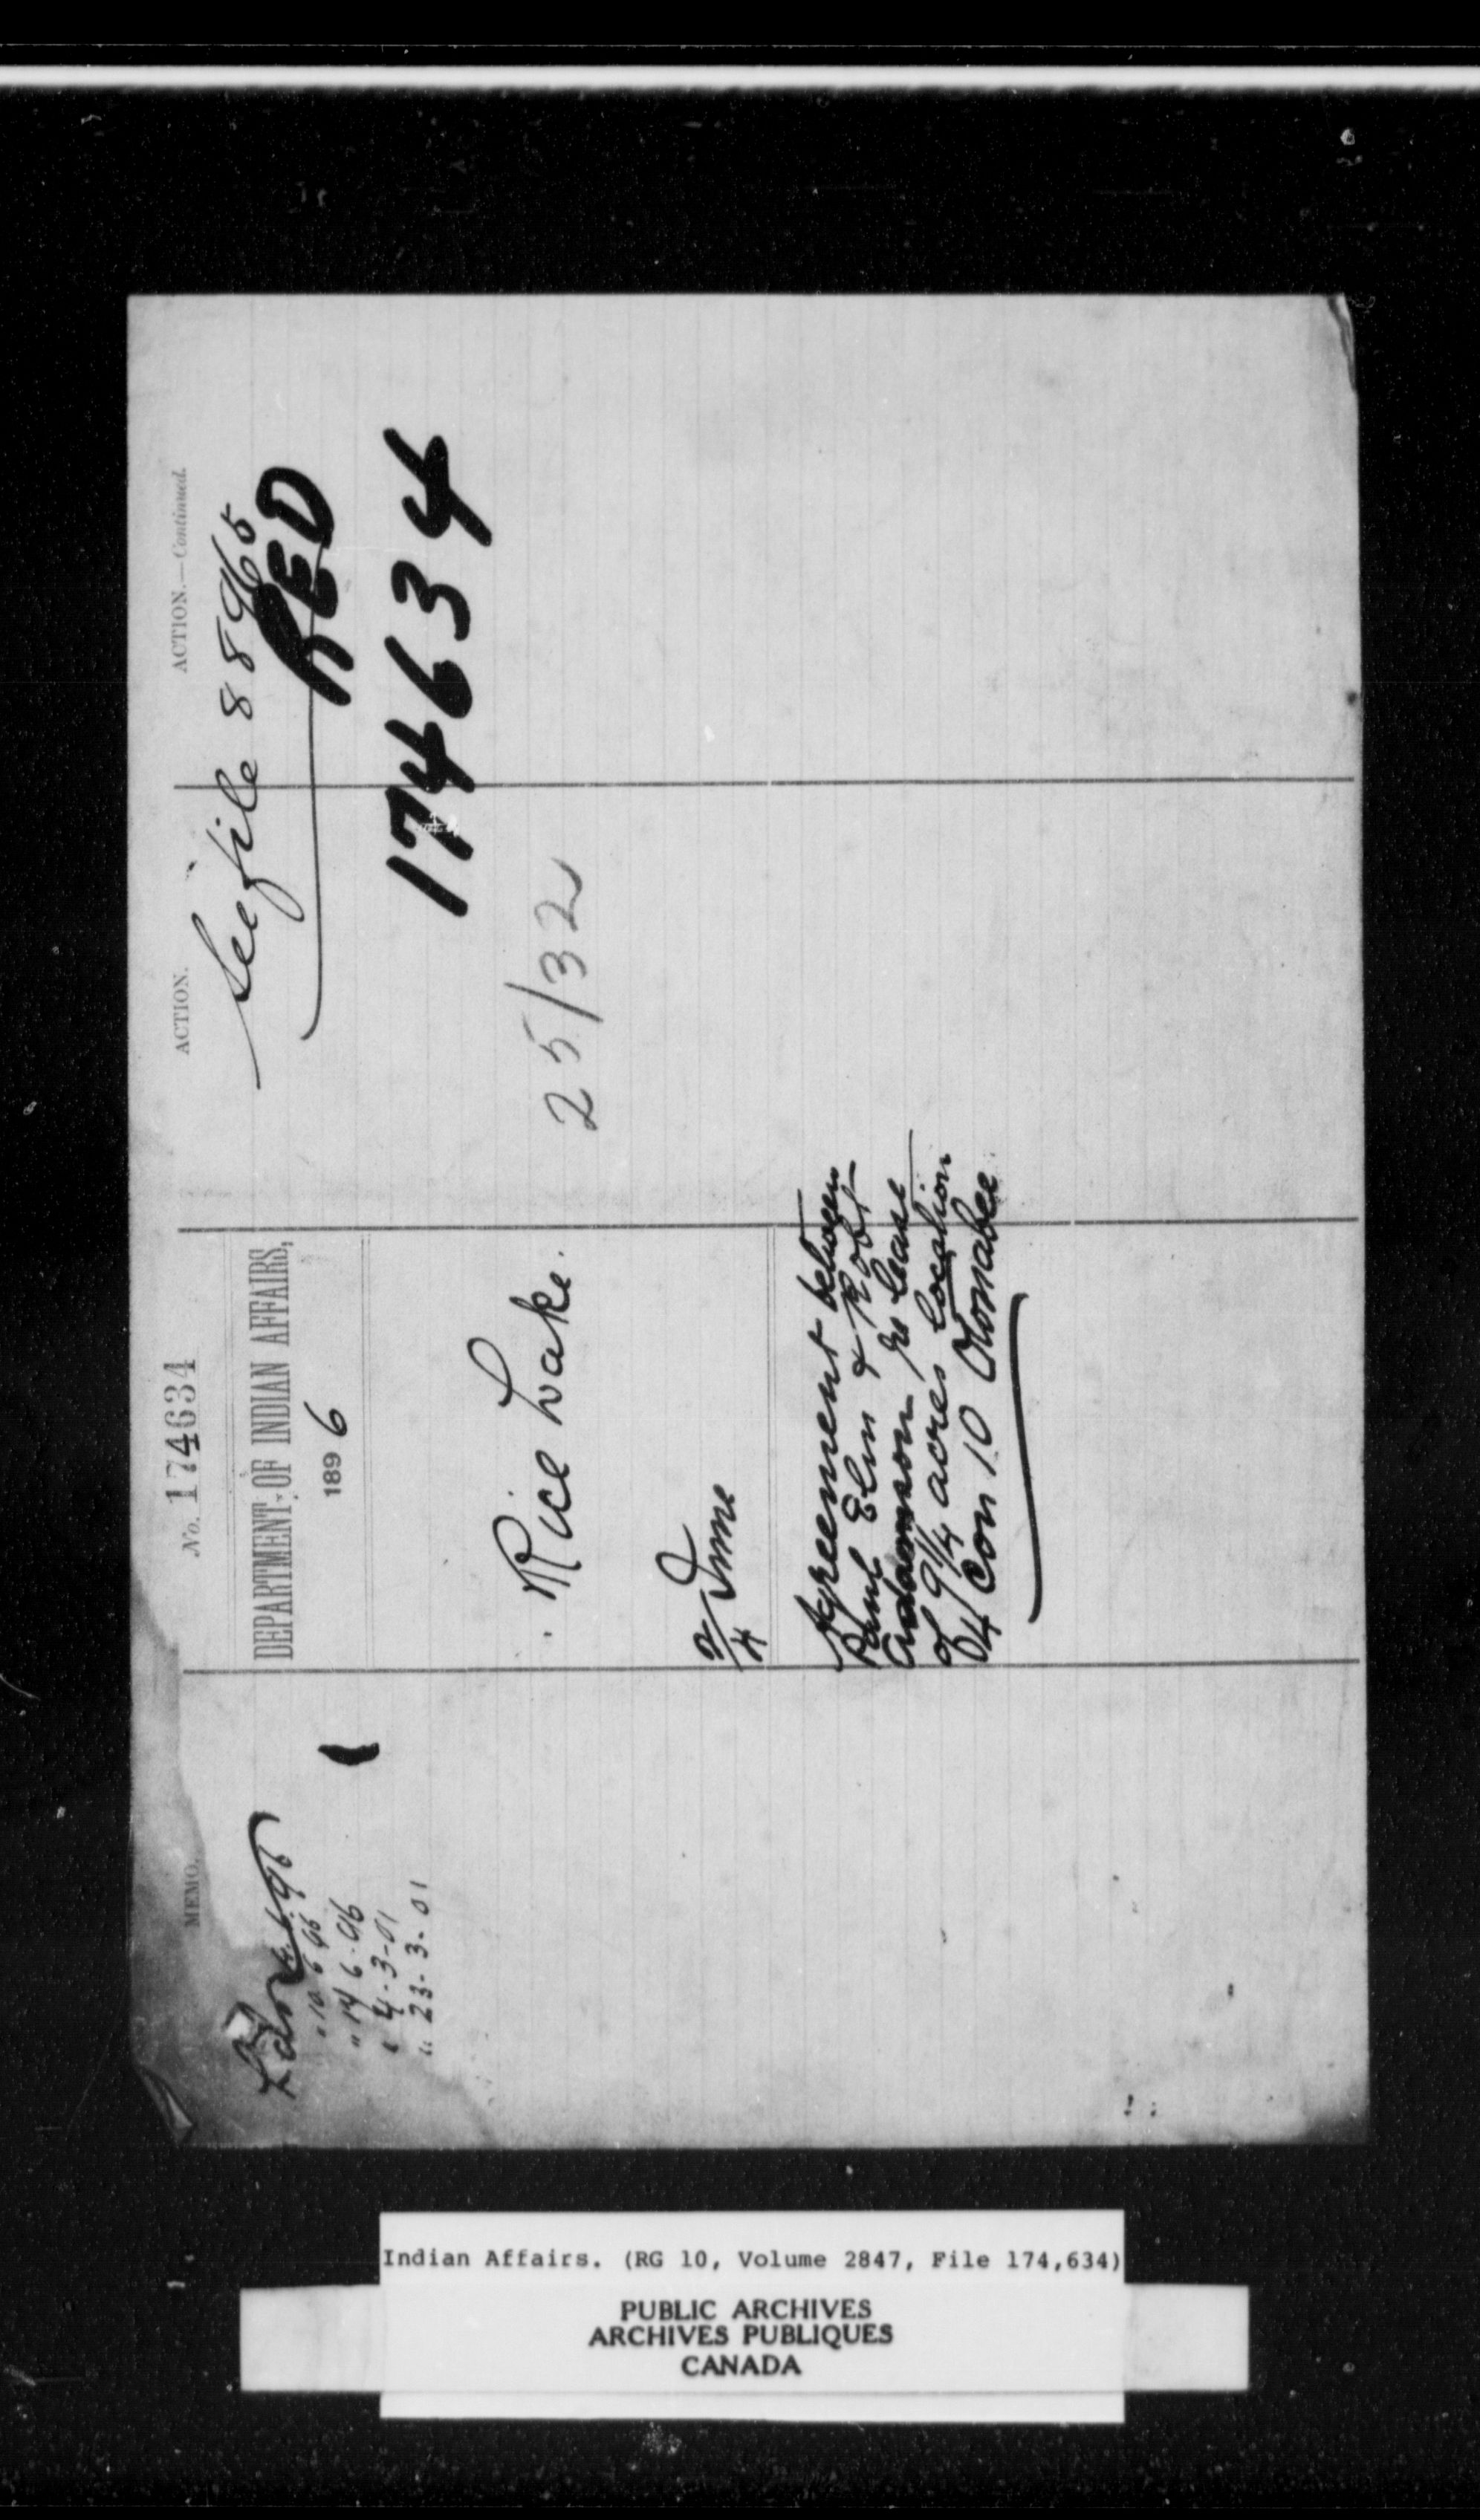 MEMO.
6.96
" 10.6.96
" 14 6-96
" 4-3-01
" 23-3-01
No. 174634
DEPARTMENT OF INDIAN AFFAIRS,
1896
Rice Lake.
2/4 June
Agreement between
Paul Elm & Robt
Anderson re lease
of 9 1/4 acres location
Con 10 Otonabee
ACTION.
ACTION.—Continued.
See file 88965
RED
174634
25/32
Indian Affairs. (RG 10, Volume 2847, File 174,634)
PUBLIC ARCHIVES
ARCHIVES PUBLIQUES
CANADA